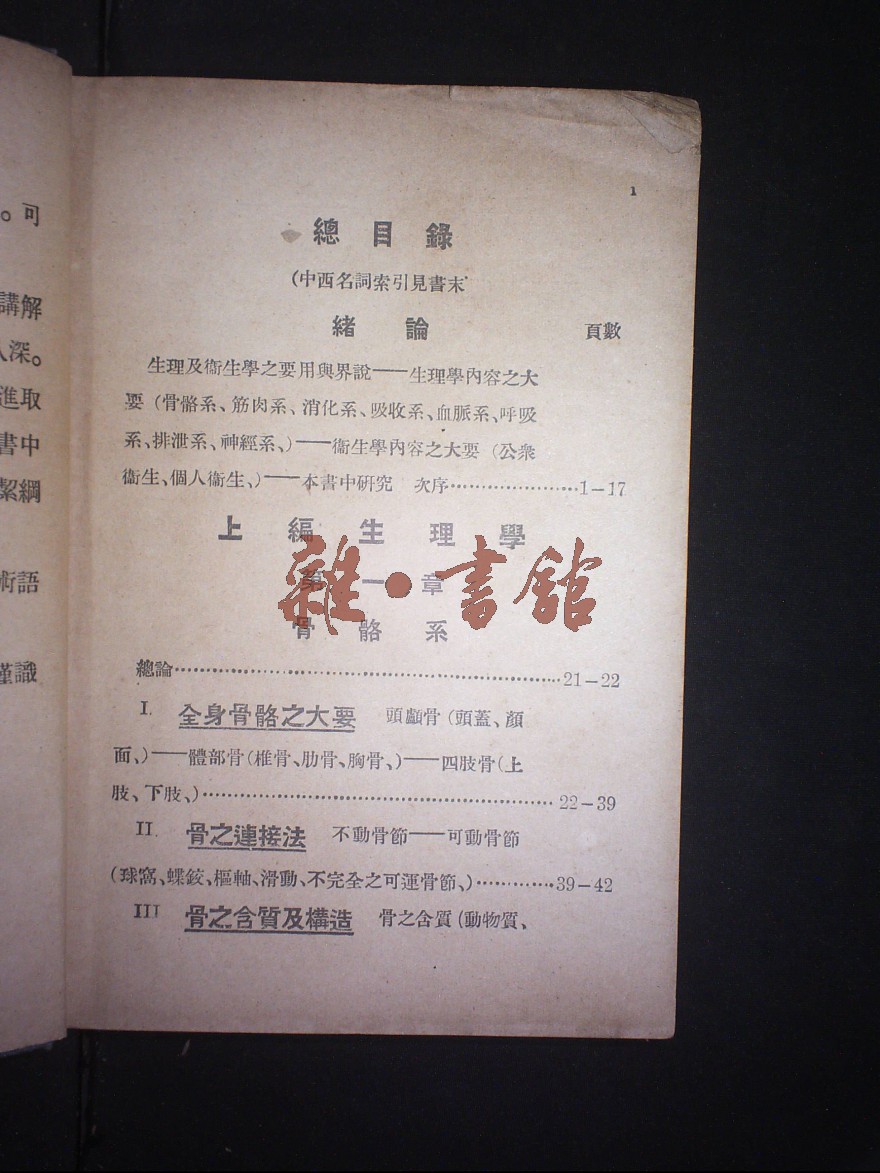 可
講解
深。
進取
書中
絜綱
術語
謹識
1
總目錄
(中西名詞索引見書末
緒論 頁數
生理及衞生學之要用與界說——生理學內容之大
要(骨骼系、筋肉系、消化系、吸收系、血脈系、呼吸
系、排泄系、神經系、)——衞生學內容之大要(公衆
衞生、個人衞生、)——本書中研究 次序…………………1-17
上編生理學
第一章
雜·書館
骨骼系
總論……………………………………………………21-22
I. 全身骨骼之大要 頭顱骨(頭蓋、顏
面、)——體部骨(椎骨、肋骨、胸骨、)——四肢骨(上
肢、下肢、)………………………………………………22-39
II. 骨之連接法 不動骨節——可動骨節
(球窩、蝶鉸、樞軸、滑動、不完全之可運骨節、)…………39-42
III 骨之含質及構造 骨之含質(動物質、